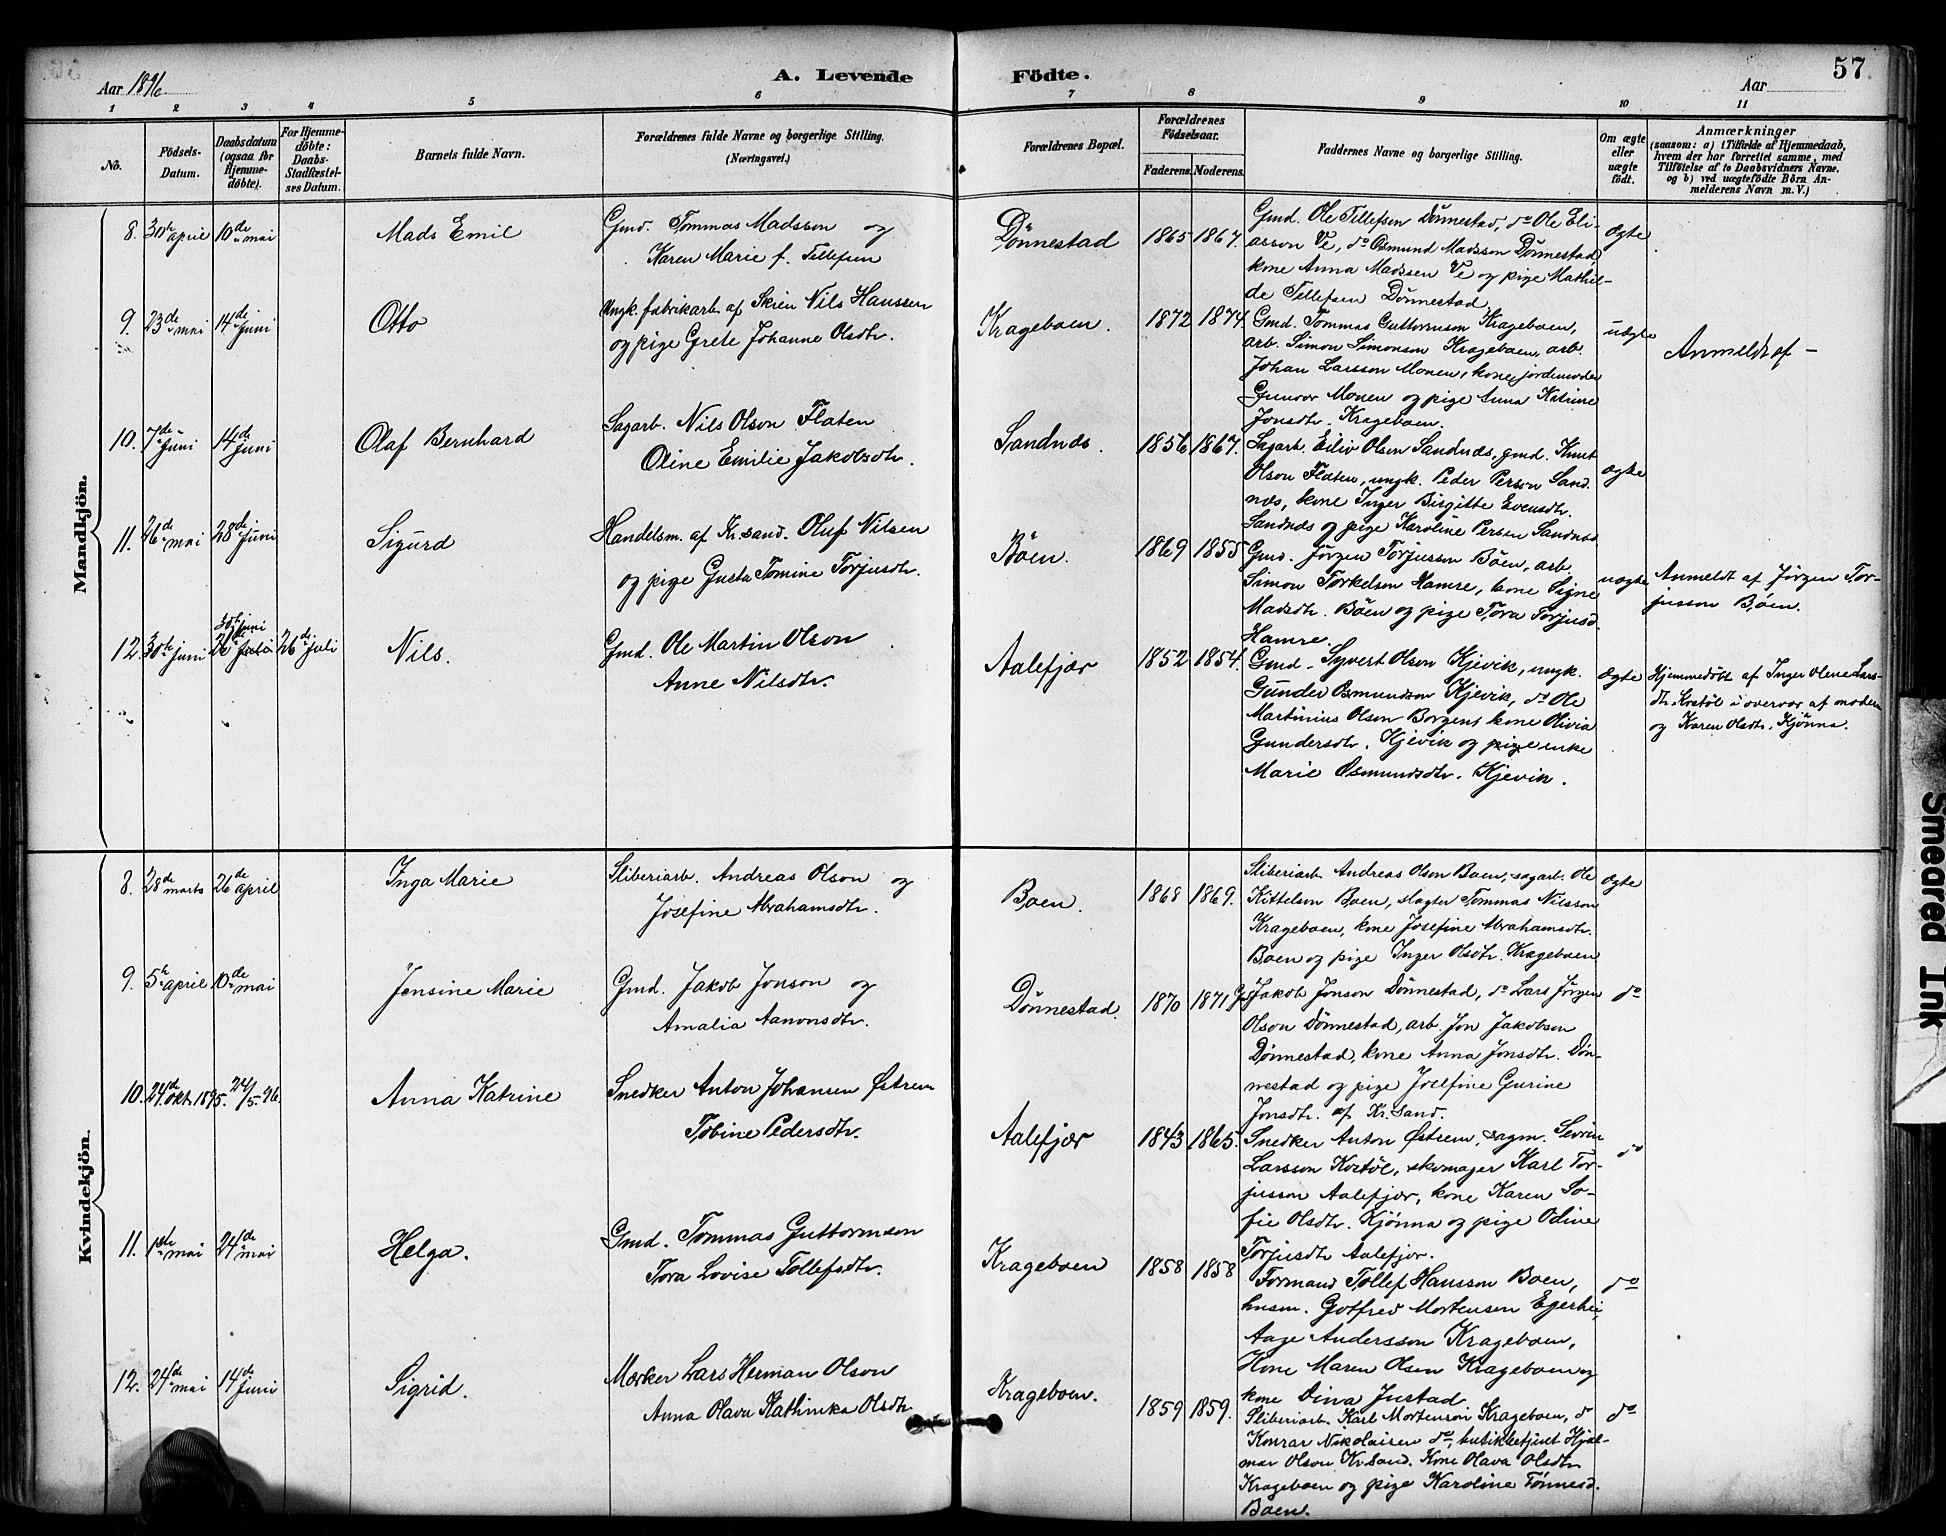 57
Aar 1896
A. Levende
Födte.
Aar
1 2 3 4 5 6 7 8 9 10 11
No.
Födsels-Datum.
Daabsdatum (ogsaa for Hjemme-döbte).
For Hjemme-döbte: Daabs-Stadfæstel-ses Datum.
Barnets fulde Navn.
Forældrenes fulde Navne og borgerlige Stilling.
(Næringsvei.)
Forældrenes Bopæl.
Forældrenes Födselsaar.
Faderens. Moderens.
Faddernes Navne og borgerlige Stilling.
Om ægte eller uægte födt.
Anmærkninger
(saasom: a) i Tilfælde af Hjemmedaab,
hvem der har forrettet samme, med
Tilföielse af to Daabsvidners Navne,
og b) ved uægtefödte Börn An-
melderens Navn m. V.)
Mandkjön.
8. 30te april 10de mai Mads Emil
Gmd. Tommas Madsson og
Karen Marie f. Tellefsen
Dønnestad 1865 1867.
Gmd. Ole Tellefsen Dønnestad, do Ole Eli-
asson Ve, do Osmund Madsson Dønnestad,
kone Anna Madssen Ve og pige Mathil-
de Tellefsen Dønnestad
ægte
9. 23de mai 14de juni Otto
Ungk. fabrikarb. af Skien Nils Hanssen
og pige Grete Johanne Olsdtr.
Krageboen. 1872 1874
Gmd. Tommas Guttormson Krageboen,
arb. Simon Simonson Krageboen, arb.
Johan Larsson Monen, kone, jordemoder
Gunvor Monen og pige Anna Katrine
Jonsdtr. Krageboen.
uægte
Anmeldt af –
10. 7de juni 14de juni Olaf Bernhard
Sagarb. Nils Olson Flaten
Oline Emilie Jakobsdtr.
Sandnes. 1856 1867.
Sagarb. Eiliv Olsen Sandnes, gmd. Knut
Olson Flaten, ungk. Peder Person Sand
næs, kone Inger Birgitte Evensdtr.
Sandnæs og pige Karoline Persen Sandnæs
ægte
11. 26de mai 28de juni Sigurd
Handelsm. af Kr.sand. Oluf Nilsen
og pige Gusta Tomine Torjusdtr.
Bøen. 1869 1855
Gmd. Jørgen Torjusson Bøen, arb.
Simon Torkelson Hamre, kone Signe
Madsdtr. Bøen og pige Tora Torjusd.
Hamre.
uægte
Anmeldt af Jørgen Tor-
jusson Bøen.
12. 30te juni 30te juni 26de juli 26de juli Nils.
Gmd. Ole Martin Olson
Anne Nilsdtr.
Aalefjær 1852 1854.
Gmd. Syvert Olson Kjevik, ungk.
Gunder Osmundson Kjevik, do Ole
Martinius Olsen Borgens kone Olivia
Gundersdtr. Kjevik og pige enke
Marie Osmundsdtr. Kjevik.
ægte
Hjemmedøbt af Inger Olene Lars-
dtr. Kostøl i overvær af modern
og Karen Olsdtr. Kjønna.
Kvindekjön.
8. 28de marts 26de april Inga Marie
Sliberiarb. Andreas Olson og
Josefine Abrahamsdtr.
Boen. 1868 1869.
Sliberiarb. Andreas Olson Boen, sagarb. Ole
Kittelson Boen, slagter Tommas Nilsson
Krageboen, kone Josefine Abrahamsdtr.
Boen og pige Inger Olsdtr. Krageboen
ægte
9. 5te april 10de mai Jensine Marie
Gmd. Jakob Jonson og
Amalia Aanonsdtr.
Dønnestad. 1870 1871
Gmd. Jakob Jonson Dønnestad, do Lars Jørgen
Olson Dønnestad, arb. Jon Jakobson
Dønnestad, kone Anna Jonsdtr. Døn-
nestad og pige Josefine Gurine
Jonsdtr. af Kr.sand.
do
10. 24de okt. 1895. 24/5. 96. Anna Katrine
Snedker Anton Johansen Østrem
Tobine Pedersdtr.
Aalefjær 1843 1865.
Snedker Anton Østrem, sagm. Sevrin
Larsson Kostøl, skomager Karl Tor-
jusson Aalefjær, kone Karen So-
fie Olsdtr. Kjønna og pige Odine
Torjusdtr Aalefjær.
do
11. 1ste mai 24de mai Helga.
Gmd. Tommas Guttormson
Tora Lovise Tollefsdtr.
Krageboen 1858 1858
Formand Tollef Hansson Boen,
husm. Gotfred Mortensen Egerhei,
Aage Andersson Krageboen,
Kone Maren Olsen Krageboen og
kone Dina Justad
do
12. 24de mai 14de juni Sigrid.
Mærker Lars Herman Olson
Anna Olava Kathinka Olsdtr
Krageboen. 1859 1859.
Sliberiarb. Karl Mortenson Krageboen, do
Konrad Nikolaisen do, butikbetjent Hjal-
mar Olson Kr.sand. Kone Olava Olsdtr
Krageboen og pige Karoline Tønnesd.
Boen.
do
Smeared Ink